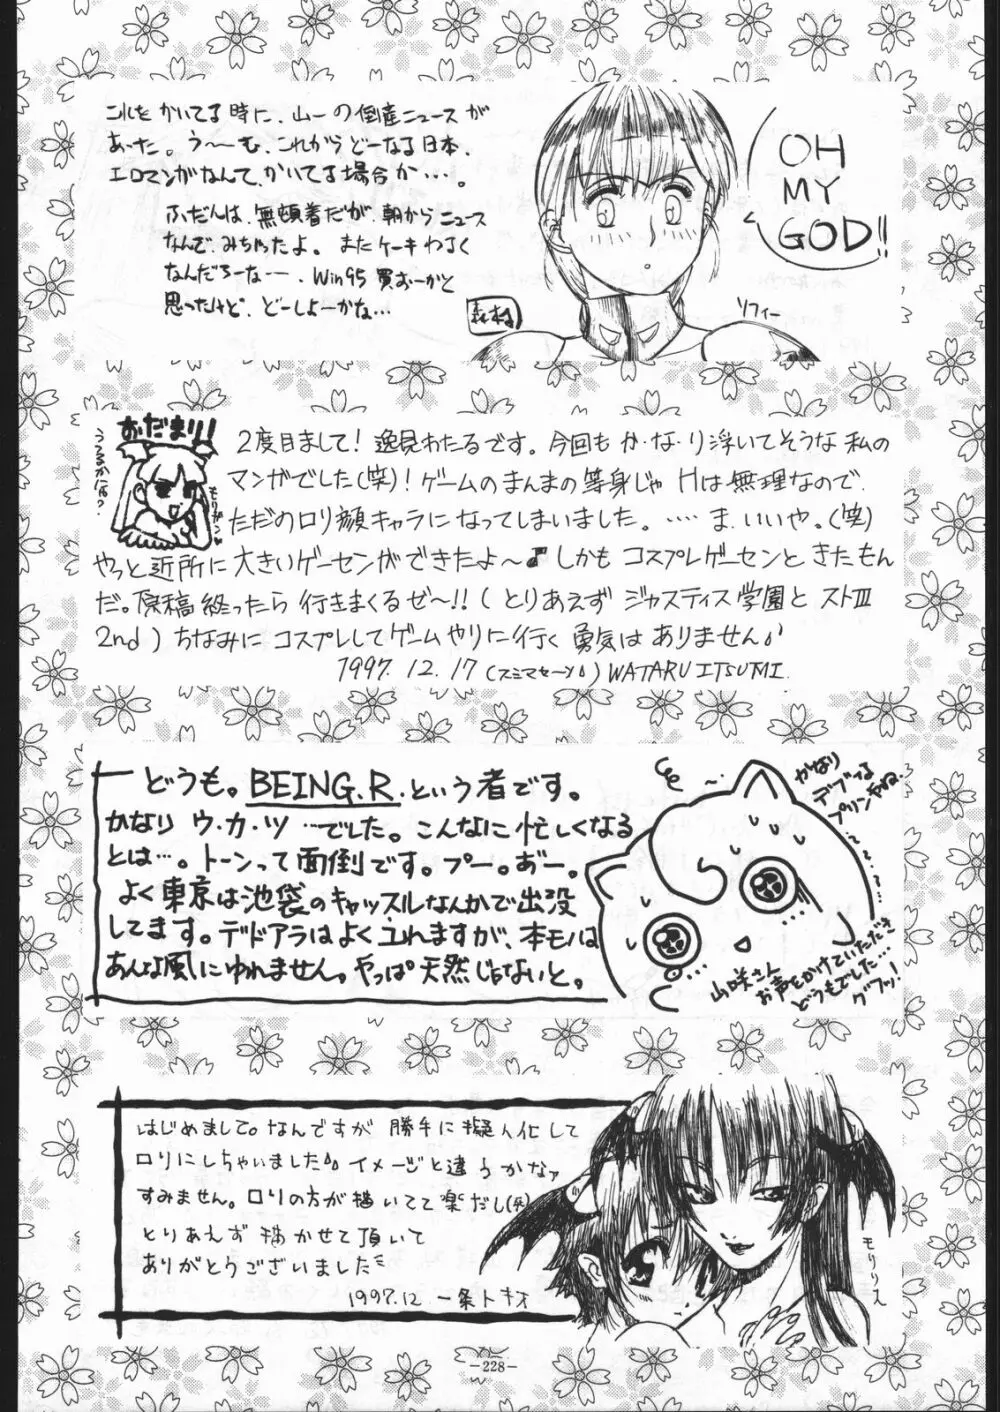 これをかいてる時に、山一の倒産ニュースが
あった。う〜む、これからどーなる日本、
エロマンガなんて、かいてる場合か…。
ふだんは、無頓着だが、朝からニュース
なんぞ、みちゃったよ。またケーキわるく
なんだろーなー…、Win95買おーかと
思ったけど、どーしよーかな…
OH
MY
GOD!!
ソフィー
おだまり!
2度目まして!逸見わたるです。今回もか・な・り浮いてそうな私の
マンガでした(笑)!ゲームのまんまの等身じゃHは無理なので、
ただのロリ顔キャラになってしまいました。……ま、いいや。(笑)
やっと近所に大きいゲーセンができたよ〜♪しかもコスプレゲーセンときたもん
だ。原稿終ったら行きまくるぜ〜!!(とりあえずジャスティス学園とストIII
2nd)ちなみにコスプレしてゲームやりに行く勇気はありません
1997.12.17(スミマセーン)WATARU ITSUMI.
どうも。BEING.R.という者です。
かなりウ・カ・ツ…でした。こんなに忙しくなる
とは…。トーンって面倒です。プー。あ゛ー。
よく東京は池袋のキャッスルなんかで出没
してます。デドアラはよくユれますが、本モノは
あんな風にゆれません。やっぱ天然じゃないと。
かなり
デブィな
プリンやね。
山咲さん
お声をかけていただき
どうもでした…
グフッ!
はじめまして。なんですが勝手に擬人化して
ロリにしちゃいました イメージと違うかなァ
すみません。ロリの方が描いてて楽だし(死)
とりあえず描かせて頂いて
ありがとうございました
1997.12 一条トキオ
モリリえ
-228-